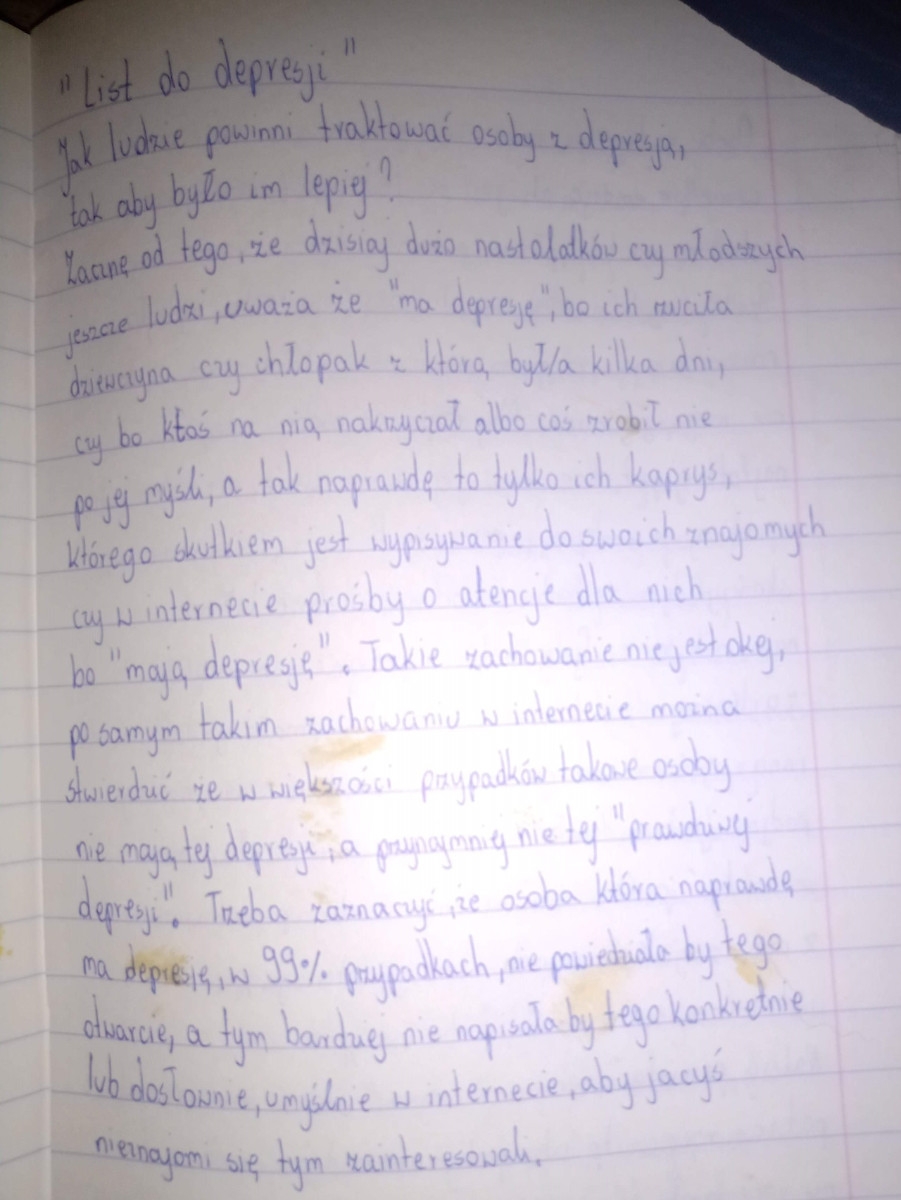 "List do depresji"
Jak ludzie powinni traktować osoby z depresją,
tak aby było im lepiej?
Zacznę od tego, że dzisiaj dużo nastolatków czy młodszych
jeszcze ludzi, uważa że "ma depresję", bo ich rzuciła
dziewczyna czy chłopak z którą był/a kilka dni,
czy bo ktoś na nią nakrzyczał albo coś zrobił nie
po jej myśli, a tak naprawdę to tylko ich kaprys,
którego skutkiem jest wypisywanie do swoich znajomych
czy w internecie prośby o atencje dla nich
bo "mają depresję". Takie zachowanie nie jest okej,
po samym takim zachowaniu w internecie można
stwierdzić że w większości przypadków takowe osoby
nie mają tej depresji, a przynajmnię nie tej "prawdziwej
depresji". Trzeba zaznaczyć, że osoba która naprawdę
ma depresję, w 99% przypadkach, nie powiedziała by tego
otwarcie, a tym bardziej nie napisała by tego konkretnie
lub dosłownie, umyślnie w internecie, aby jacyś
nieznajomi się tym zainteresowali.